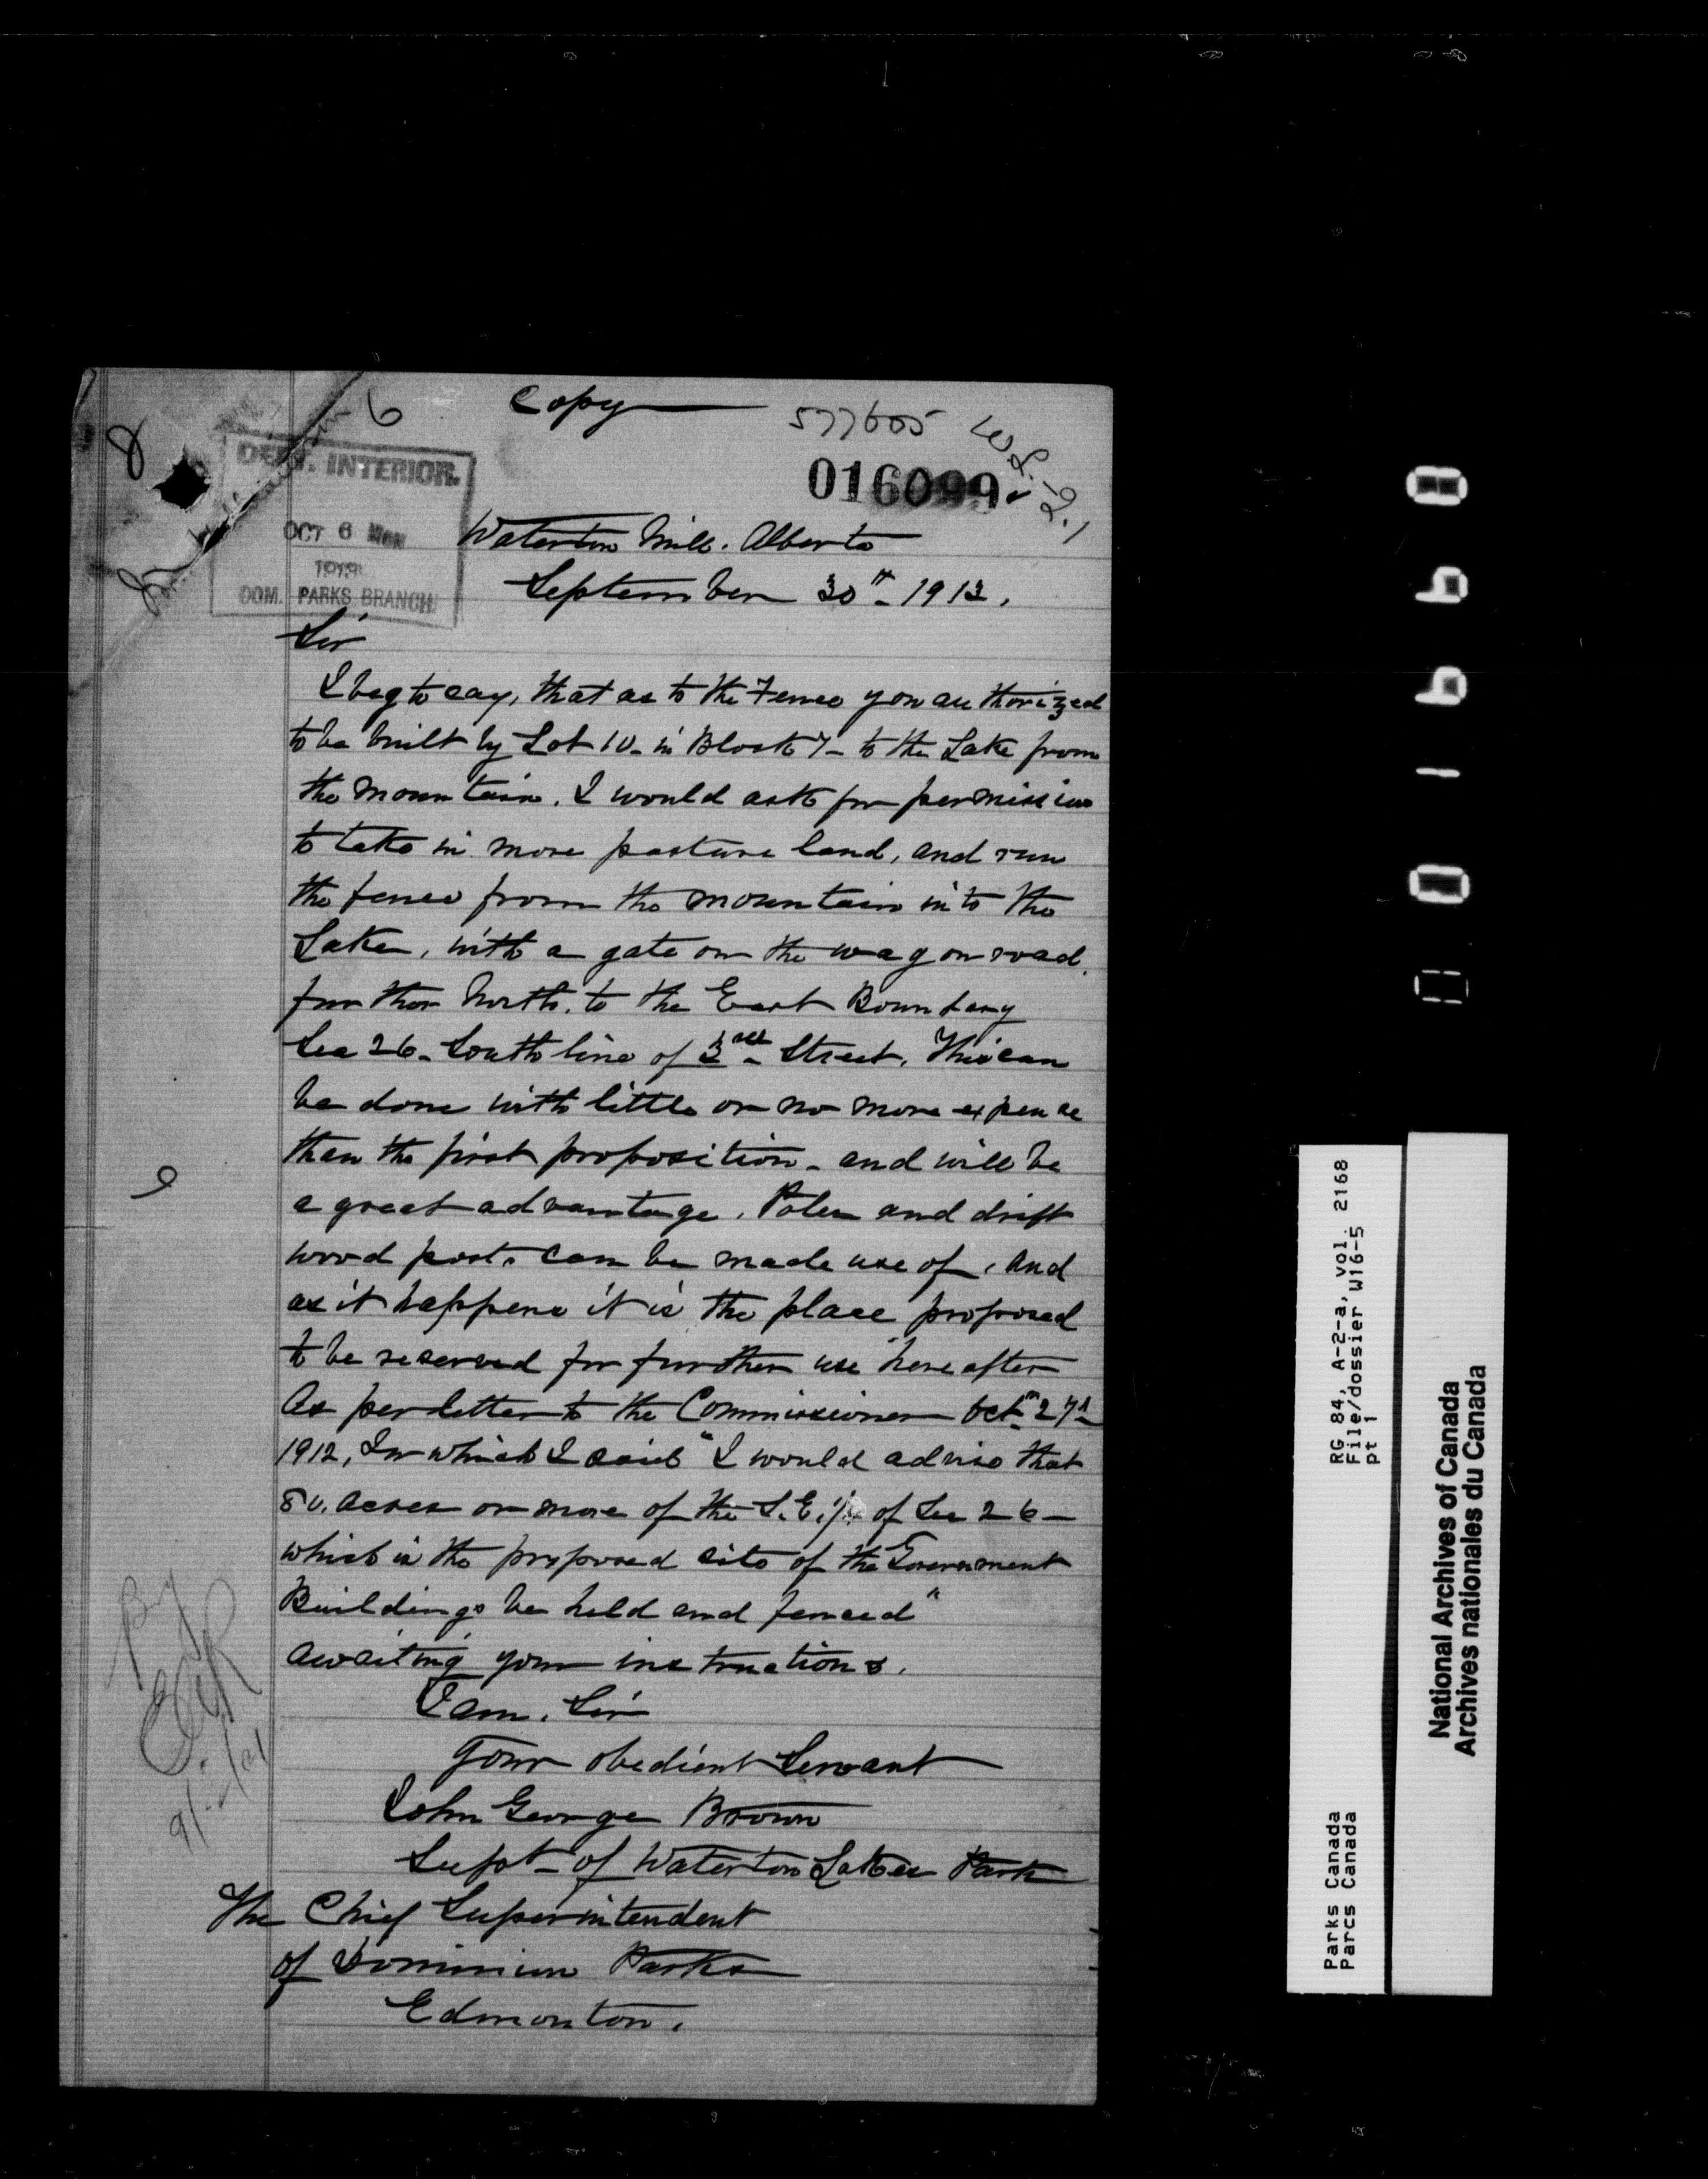 6 Copy 577605
016099
DEPT. INTERIOR.
OCT 6
1913
DOM. PARKS BRANCH
Waterton Mill. Alberta
September 30th 1913.
Sir
I beg to say, that as to the Fence you authorized
to be built by Lot 10 - in Block 7 - to the Lake from
the Mountain. I would ask for permission
to take in more pasture land, and run
the fence from the mountain into the
Lake, with a gate on the wagon road
further North, to the East Boundary
Sec 26 - South line of 3rd Street, This can
be done with little or no more expense
than the first proposition - and will be
a great advantage. Poles and drift
wood posts can be made use of, and
as it happens it is the place proposed
to be reserved for further use hereafter
As per letter to the Commissioner Oct 27th
1912, In which I said "I would advise that
80. acres or more of the S.E. 1/4 of Sec 26 -
which is the proposed site of the Government
Buildings be held and fenced"
awaiting your instructions.
I am. Sir
Your obedient Servant
John George Brown
Supt - of Waterton Lakes Park
The Chief Superintendent
of Dominion Parks
Edmonton.
RG 84, A-2-a, vol. 2168
File/dossier W16-5
pt 1
Parks Canada
Parcs Canada
National Archives of Canada
Archives nationales du Canada